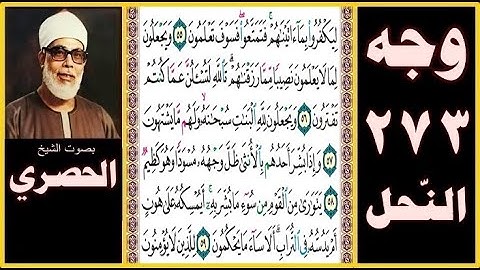 وجه
٢٧٣
النّحل
بصوت الشيخ
الحصري
لِيَكْفُرُوا۟ بِمَآ ءَاتَيْنَٰهُمْ ۚ فَتَمَتَّعُوا۟ ۖ فَسَوْفَ تَعْلَمُونَ ٥٥ وَيَجْعَلُونَ
لِمَا لَا يَعْلَمُونَ نَصِيبًا مِّمَّا رَزَقْنَٰهُمْ ۗ تَٱللَّهِ لَتُسْـَٔلُنَّ عَمَّا كُنتُمْ
تَفْتَرُونَ ٥٦ وَيَجْعَلُونَ لِلَّهِ ٱلْبَنَٰتِ سُبْحَٰنَهُۥ ۙ وَلَهُم مَّا يَشْتَهُونَ
٥٧ وَإِذَا بُشِّرَ أَحَدُهُم بِٱلْأُنثَىٰ ظَلَّ وَجْهُهُۥ مُسْوَدًّا وَهُوَ كَظِيمٌ
٥٨ يَتَوَٰرَىٰ مِنَ ٱلْقَوْمِ مِن سُوٓءِ مَا بُشِّرَ بِهِۦٓ ۚ أَيُمْسِكُهُۥ عَلَىٰ هُونٍ
أَمْ يَدُسُّهُۥ فِى ٱلتُّرَابِ ۗ أَلَا سَآءَ مَا يَحْكُمُونَ ٥٩ لِلَّذِينَ لَا يُؤْمِنُونَ